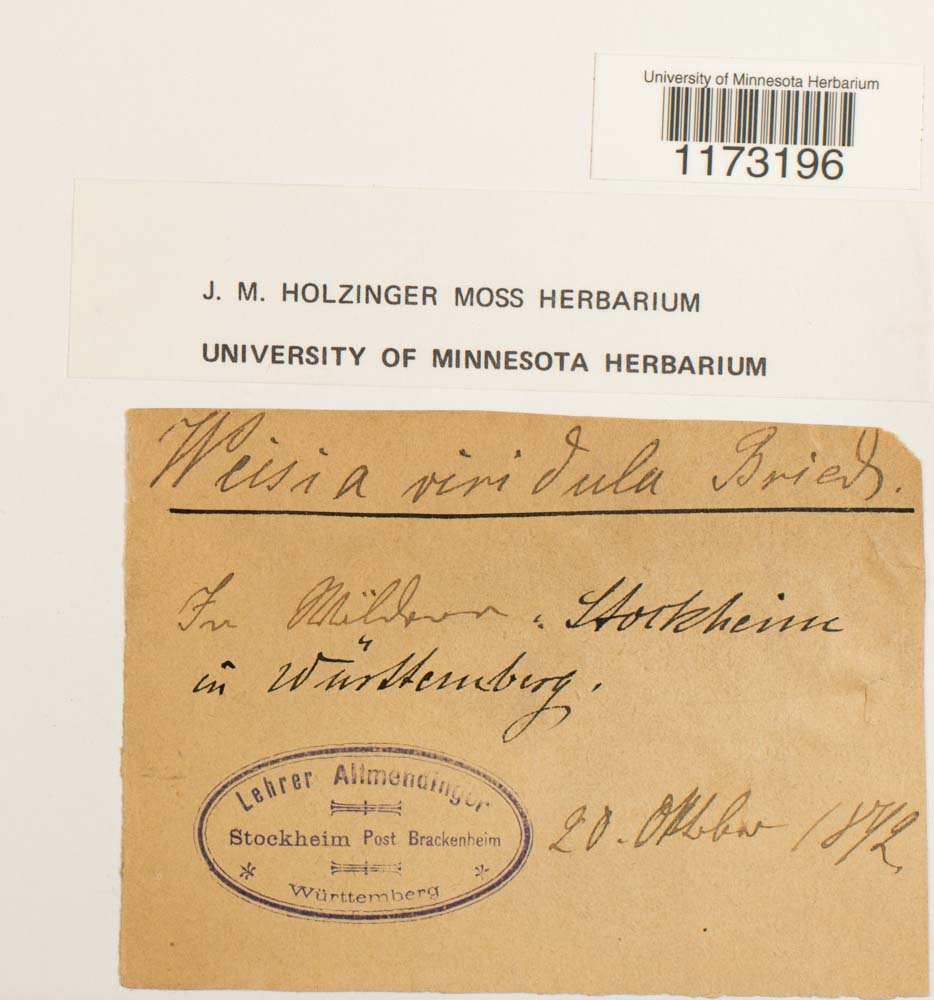 University of Minnesota Herbarium
1173196
J. M. HOLZINGER MOSS HERBARIUM
UNIVERSITY OF MINNESOTA HERBARIUM
Weisia viridula Brid.
In Wäldern Stockheim
in Württemberg.
Lehrer Allmendinger
Stockheim Post Brackenheim
Württemberg
20. Oktober 1872.